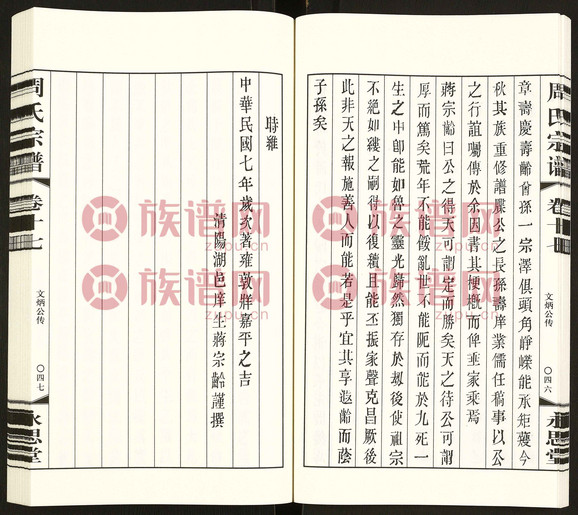 周氏宗谱
卷十七
文炳公传
〇四六
永思堂
章壽慶壽齡曾孫一宗澤俱頭角崢嶸能承矩矱今
秋其族重修譜牒公之長孫壽庠業儒任稿事以公
之行誼囑傳於余因書其梗概而俾垂家乘焉
蔣宗齡曰公之得天可謂定而勝矣天之待公可謂
厚而篤矣荒年不能餒亂世不能阨而能於九死一
生之中卽能如魯之靈光巋然獨存於刼後使祖宗
不絕如縷之嗣得以復續且能丕振家聲克昌厥後
此非天之報施善人而能若是乎宜其享遐齡而蔭
子孫矣
時維
中華民國七年歲次著雍敦牂嘉平之吉
清陽湖邑庠生蔣宗齡謹撰
周氏宗譜
卷十七
文炳公传
〇四七
永思堂
族谱网
族谱网
族谱网
族谱网